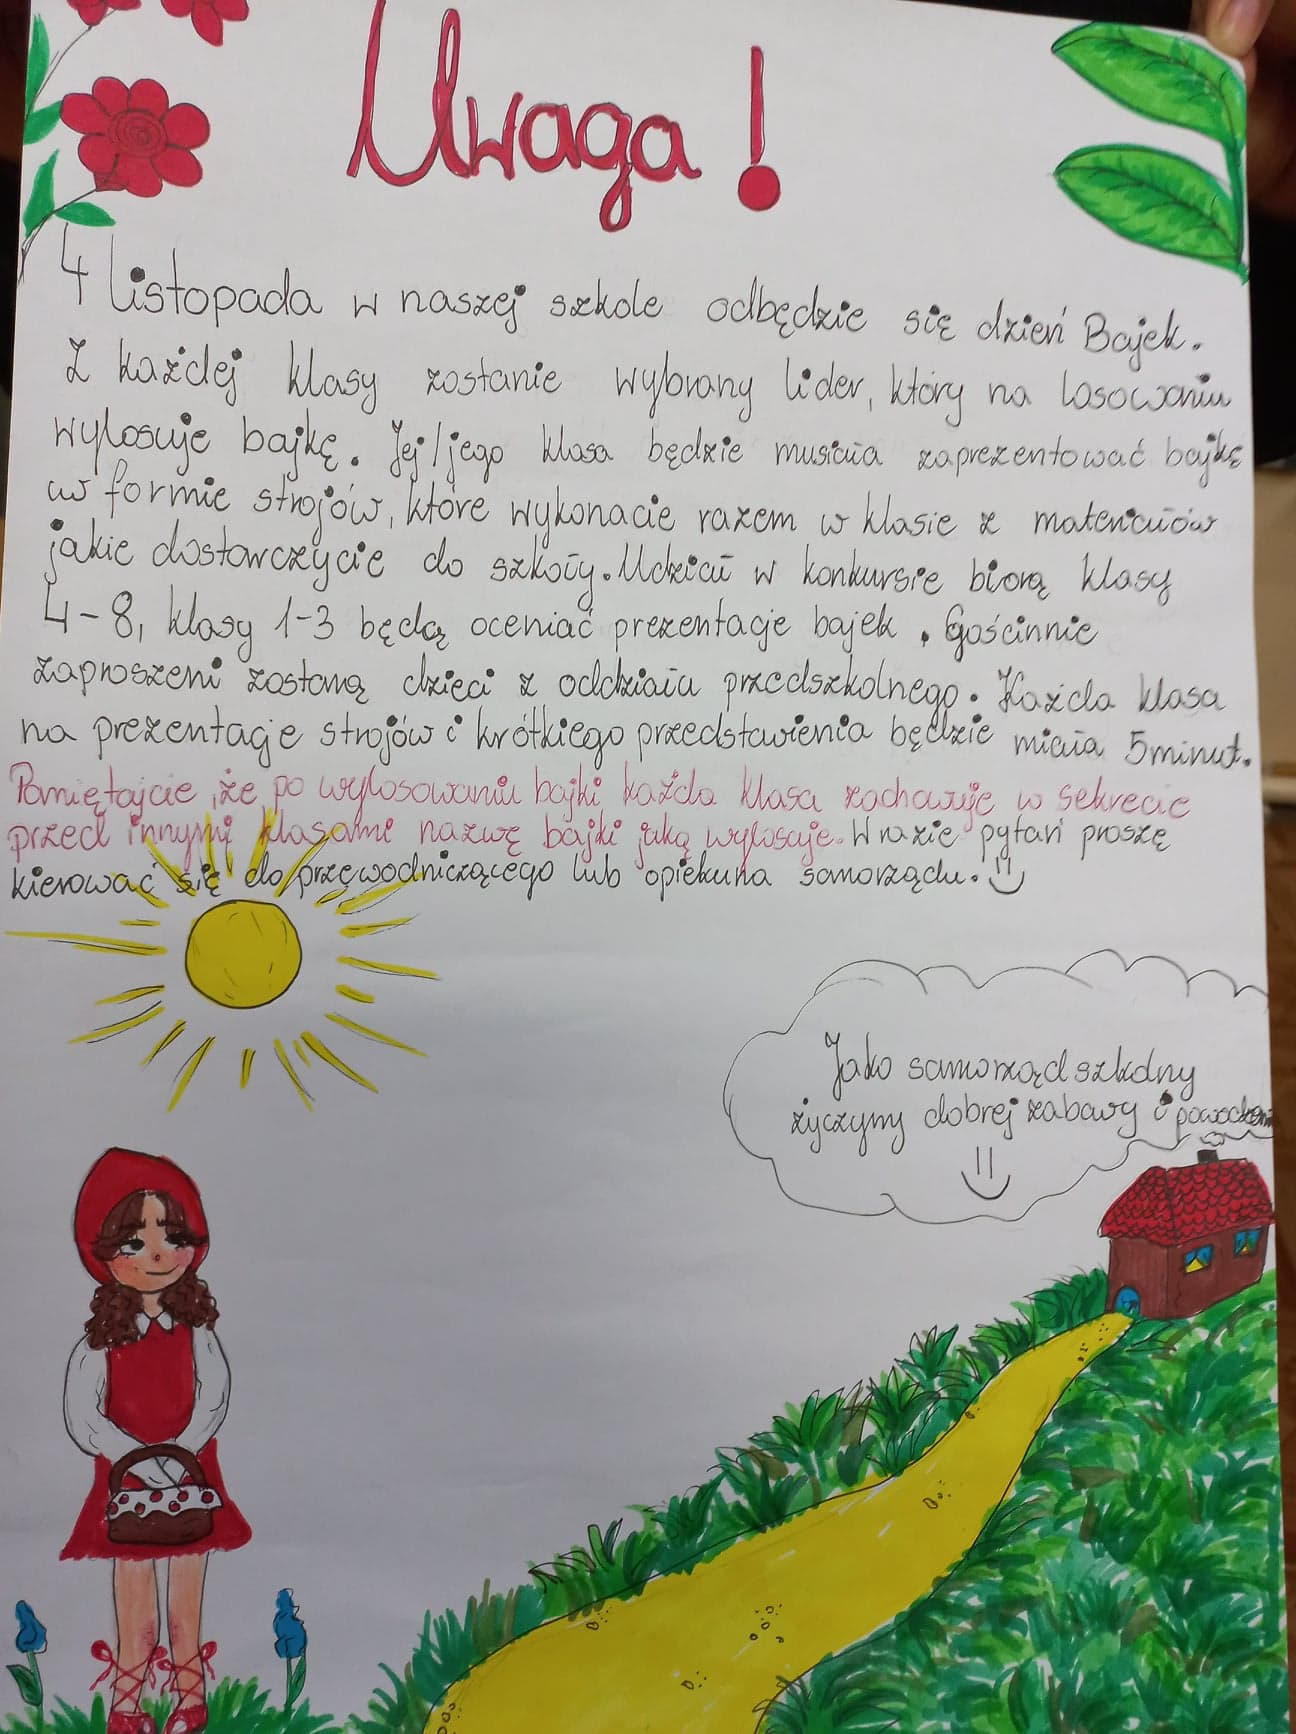 Uwaga!
4 listopada w naszej szkole odbędzie się dzień Bajek.
Z każdej klasy zostanie wybrany lider, który na losowaniu
wylosuje bajkę. Jej/jego klasa będzie musiała zaprezentować bajkę
w formie strojów, które wykonacie razem w klasie z materiałów
jakie dostarczycie do szkoły. Udział w konkursie biorą klasy
4-8, klasy 1-3 będą oceniać prezentacje bajek. Gościnnie
zaproszeni zostaną dzieci z oddziału przedszkolnego. Każda klasa
na prezentacje strojów i krótkiego przedstawienia będzie miała 5minut.
Pamiętajcie, że po wylosowaniu bajki każda klasa zachowuje w sekrecie
przed innymi klasami nazwę bajki jaką wylosuje. W razie pytań proszę
kierować się do przewodniczącego lub opiekuna samorządu.
Jako samorząd szkolny
życzymy dobrej zabawy i powodzenia